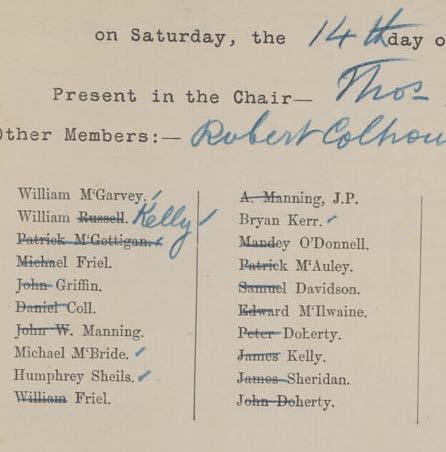 on Saturday, the 14th day o
Present in the Chair— Thos
Other Members:— Robert Colhou
William M‘Garvey.
William Russell. Kelly
Patrick M‘Gettigan.
Michael Friel.
John Griffin.
Daniel Coll.
John W. Manning.
Michael M‘Bride.
Humphrey Sheils.
William Friel.
A. Manning, J.P.
Bryan Kerr.
Mandey O’Donnell.
Patrick M‘Auley.
Samuel Davidson.
Edward M‘Ilwaine.
Peter Doherty.
James Kelly.
James Sheridan.
John Doherty.